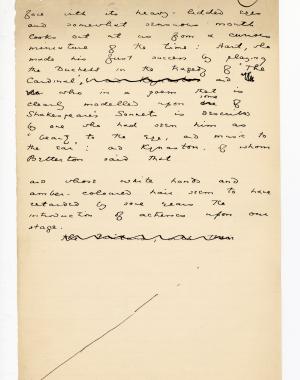 face with its heavy-lidded eyes
and somewhat sensuous mouth
looks out at us from a curious
miniature of the time: Hart, who
made his first success by playing
the Duchess in the tragedy of 'The
Cardinal', and
who in a poem that is
clearly modelled upon some of
Shakespeare's Sonnets is described
by one who had seen him as
'beauty to the eye, and music to
the ear': and Kynaston, of whom
Betterton said that
and whose white hands and
amber-coloured hair seem to have
retarded by some years the
introduction of actresses upon our
stage.